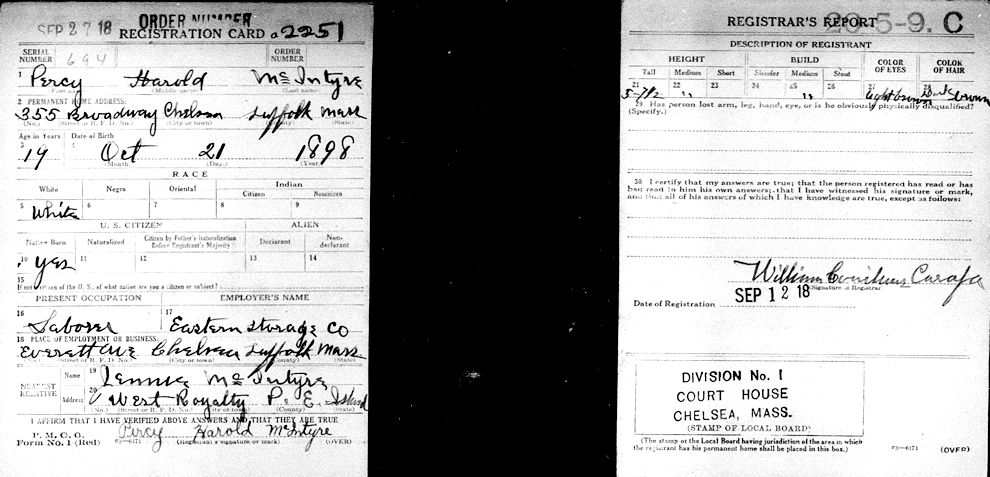 SEP 27 18 ORDER NUMBER
REGISTRATION CARD a2251
SERIAL NUMBER 694 ORDER NUMBER
1 Percy Harold Mc Intyre
(First name) (Middle name) (Last name)
2 PERMANENT HOME ADDRESS:
355 Broadway Chelsea Suffolk Mass
(No.) (Street or R. F. D. No.) (City or town) (County) (State)
Age in Years Date of Birth
3 19 4 Oct 21 1898
(Month.) (Day.) (Year.)
RACE
White Negro Oriental Indian
Citizen Noncitizen
5 White 6 7 8 9
U. S. CITIZEN ALIEN
Native Born Naturalized Citizen by Father's Naturalization Before Registrant's Majority Declarant Non-declarant
10 yes 11 12 13 14
15
If not a citizen of the U. S., of what nation are you a citizen or subject?
PRESENT OCCUPATION EMPLOYER'S NAME
16 Laborer 17 Eastern Storage Co
18 PLACE OF EMPLOYMENT OR BUSINESS:
Everett Ave Chelsea Suffolk Mass
(No.) (Street or R. F. D. No.) (City or town) (County) (State)
NEAREST RELATIVE Name 19 Mc Intyre
Address 20 West Royalty P. E. Island
(No.) (Street or R. F. D. No.) (City or town) (County) (State)
I AFFIRM THAT I HAVE VERIFIED ABOVE ANSWERS AND THAT THEY ARE TRUE
P. M. G. O.
Form No. 1 (Red) 03—6171 Percy Harold McIntyre
(Registrant's signature or mark) (OVER)
REGISTRAR'S REPORT 20-5-9. C
DESCRIPTION OF REGISTRANT
HEIGHT BUILD COLOR OF EYES COLOR OF HAIR
Tall Medium Short Slender Medium Stout
21 5-7 1/2 22 " 23 24 25 " 26 27 Light brown 28 Dark brown
29 Has person lost arm, leg, hand, eye, or is he obviously physically disqualified?
(Specify.)
30 I certify that my answers are true; that the person registered has read or has
had read to him his own answers; that I have witnessed his signature or mark,
and that all of his answers of which I have knowledge are true, except as follows:
William
(Signature of Registrar)
Date of Registration SEP 12 18
DIVISION No. 1
COURT HOUSE
CHELSEA, MASS.
(STAMP OF LOCAL BOARD)
(The stamp of the Local Board having jurisdiction of the area in which
the registrant has his permanent home shall be placed in this box.)
03—6171 (OVER)